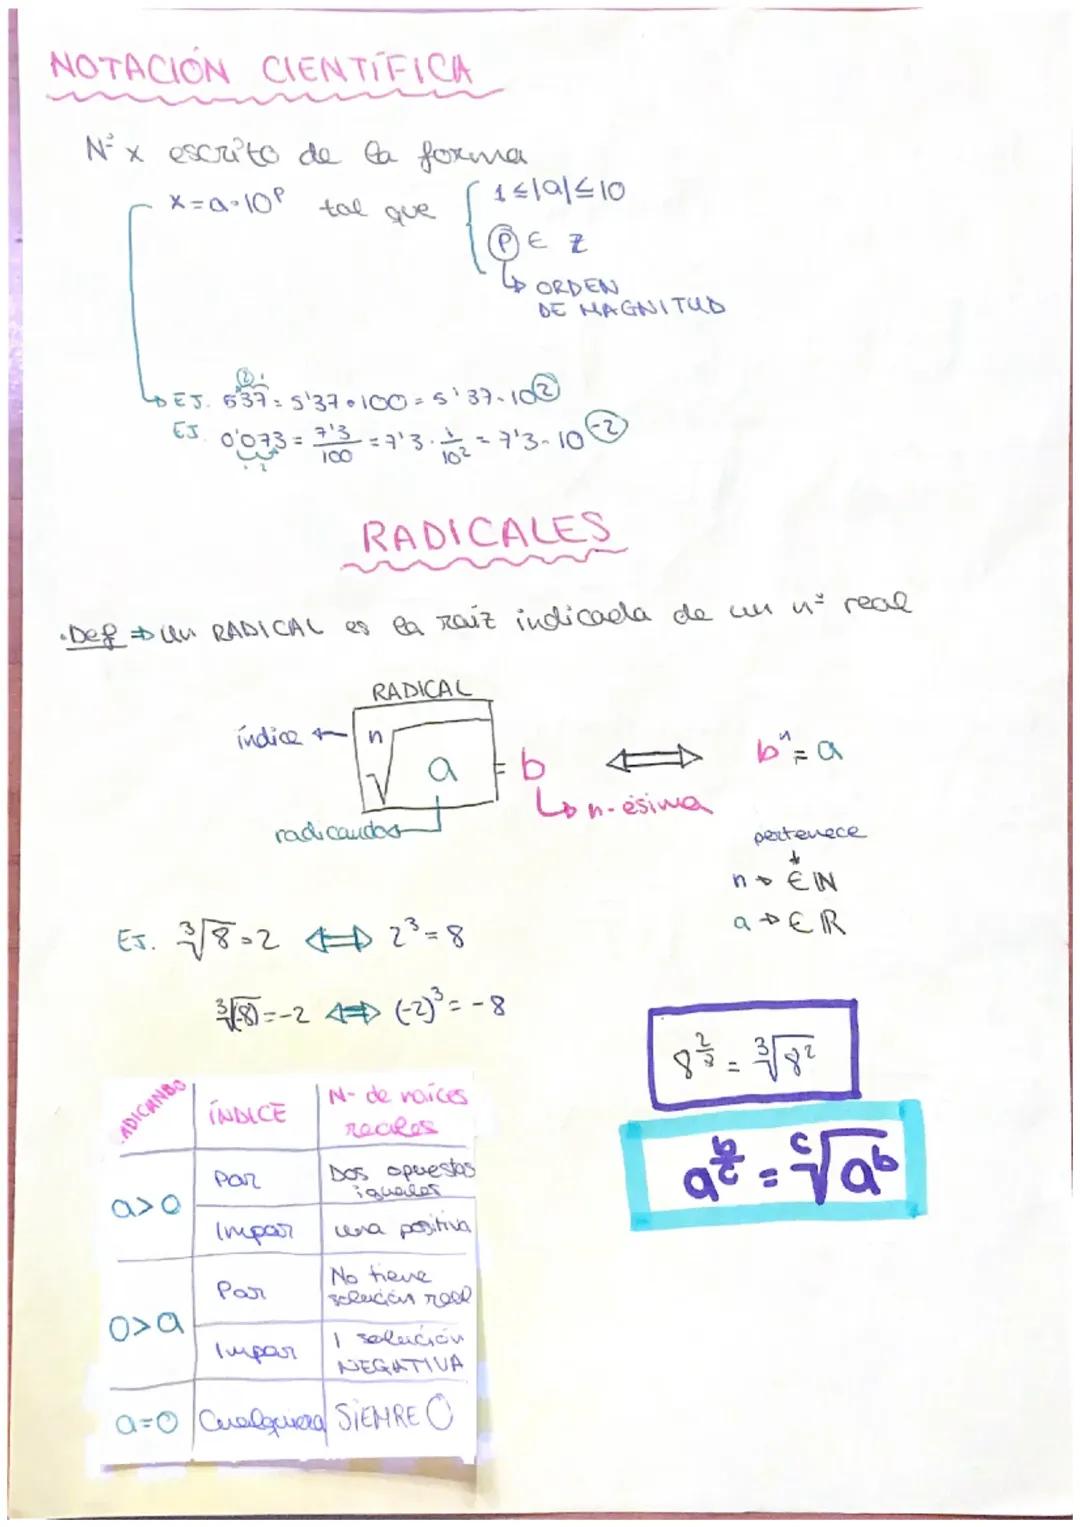 NOTACIÓN CIENTÍFICA
Nº x escrito de la forma
x = a · 10^p tal que { 1 ≤ |a| ≤ 10
P ∈ Z
↳ ORDEN
DE MAGNITUD
EJ. 537 = 5'37 · 100 = 5'37 · 10^2
EJ. 0'073 = 7'3/100 = 7'3 · 1/10^2 = 7'3 · 10^-2
RADICALES
· Def ⇒ Un RADICAL es la raíz indicada de un nº real
RADICAL
índice ← n√a = b ⟺ b^n = a
↳ n-ésima
radicando
pertenece
n → ∈ IN
a → ∈ IR
EJ. ∛8 = 2 ⟺ 2^3 = 8
∛(-8) = -2 ⟺ (-2)^3 = -8
8^(2/3) = ∛8^2
a^(b/c) = c√a^b
ADICANDO ÍNDICE N- de raíces
reales
a>0 Par Dos opuestas
iguales
Impar una positiva
0>a Par No tiene
solución real
Impar 1 solución
NEGATIVA
a=0 Cualquiera SIEMRE 0